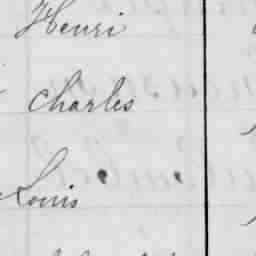 Henri
Charles
Louis